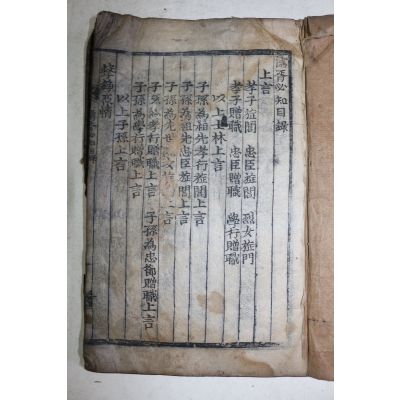 儒胥必知目錄
上言
孝子旌閭 忠臣旌閭 烈女旌門
孝子贈職 忠臣贈職 學行贈職
以上士林上言
子孫為祖先孝行旌閭上言
子孫為祖先忠臣旌閭上言
子孫為先世 上言
子孫為孝行贈職上言 子孫為忠節贈職上言
子孫為學行贈職上言
以上子孫上言
擊錚原情